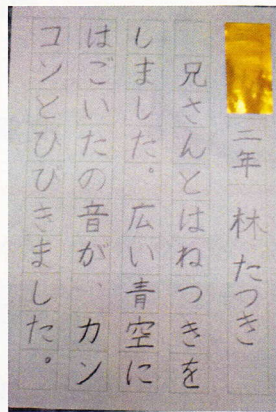 三年 林たつき
兄さんとはねつきを
しました。広い青空に
はごいたの音が、カン
コンとひびきました。